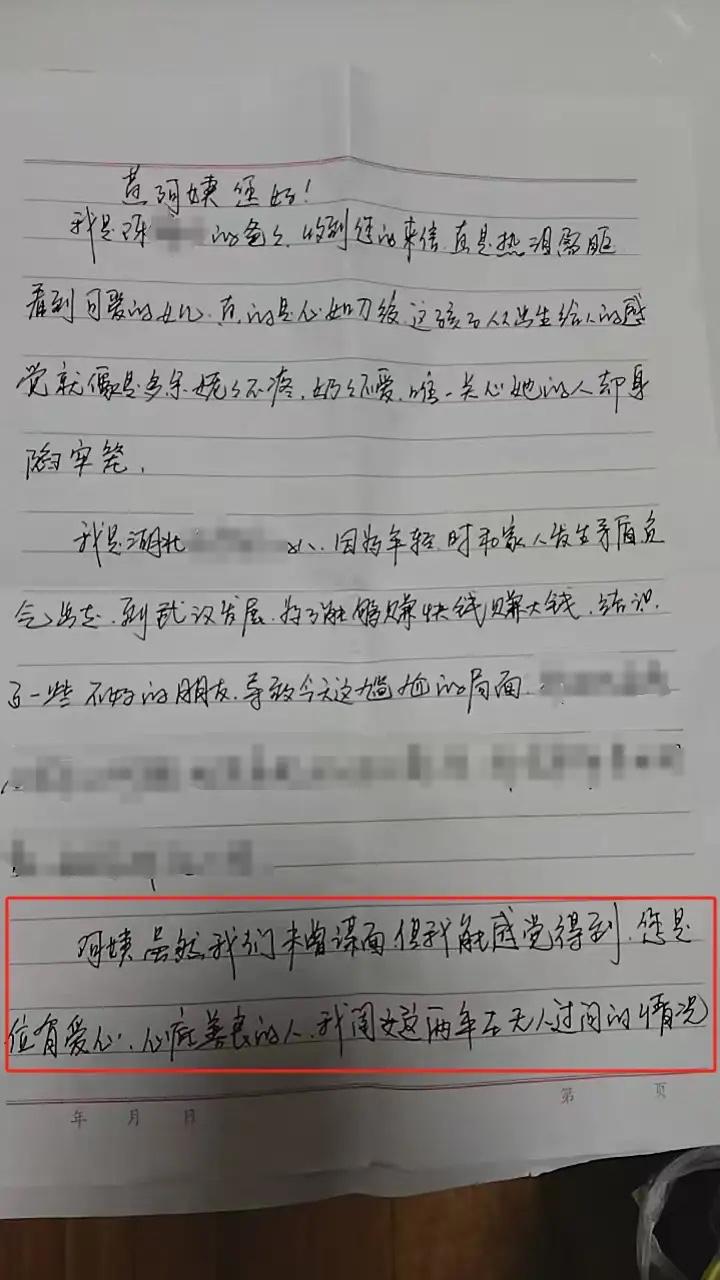 黄阿姨您好!
我是陈 的爸爸,收到您的来信真是热泪盈眶
看到可爱的女儿,真的是心如刀绞,这孩子从出生给人的感
觉就像是多余,妈妈不疼,奶奶不爱,唯一关心她的人却身
陷牢笼,
我是湖北 人,因为年轻时和家人发生矛盾负
气出走,到武汉发展,为了能够赚快钱赚大钱,结识
了一些不好的朋友,导致今天这尴尬的局面
阿姨虽然我们未曾谋面但我能感觉得到,您是
位有爱心,心底善良的人,我闺女这两年在无人过问的情况
年 月 日
第 页